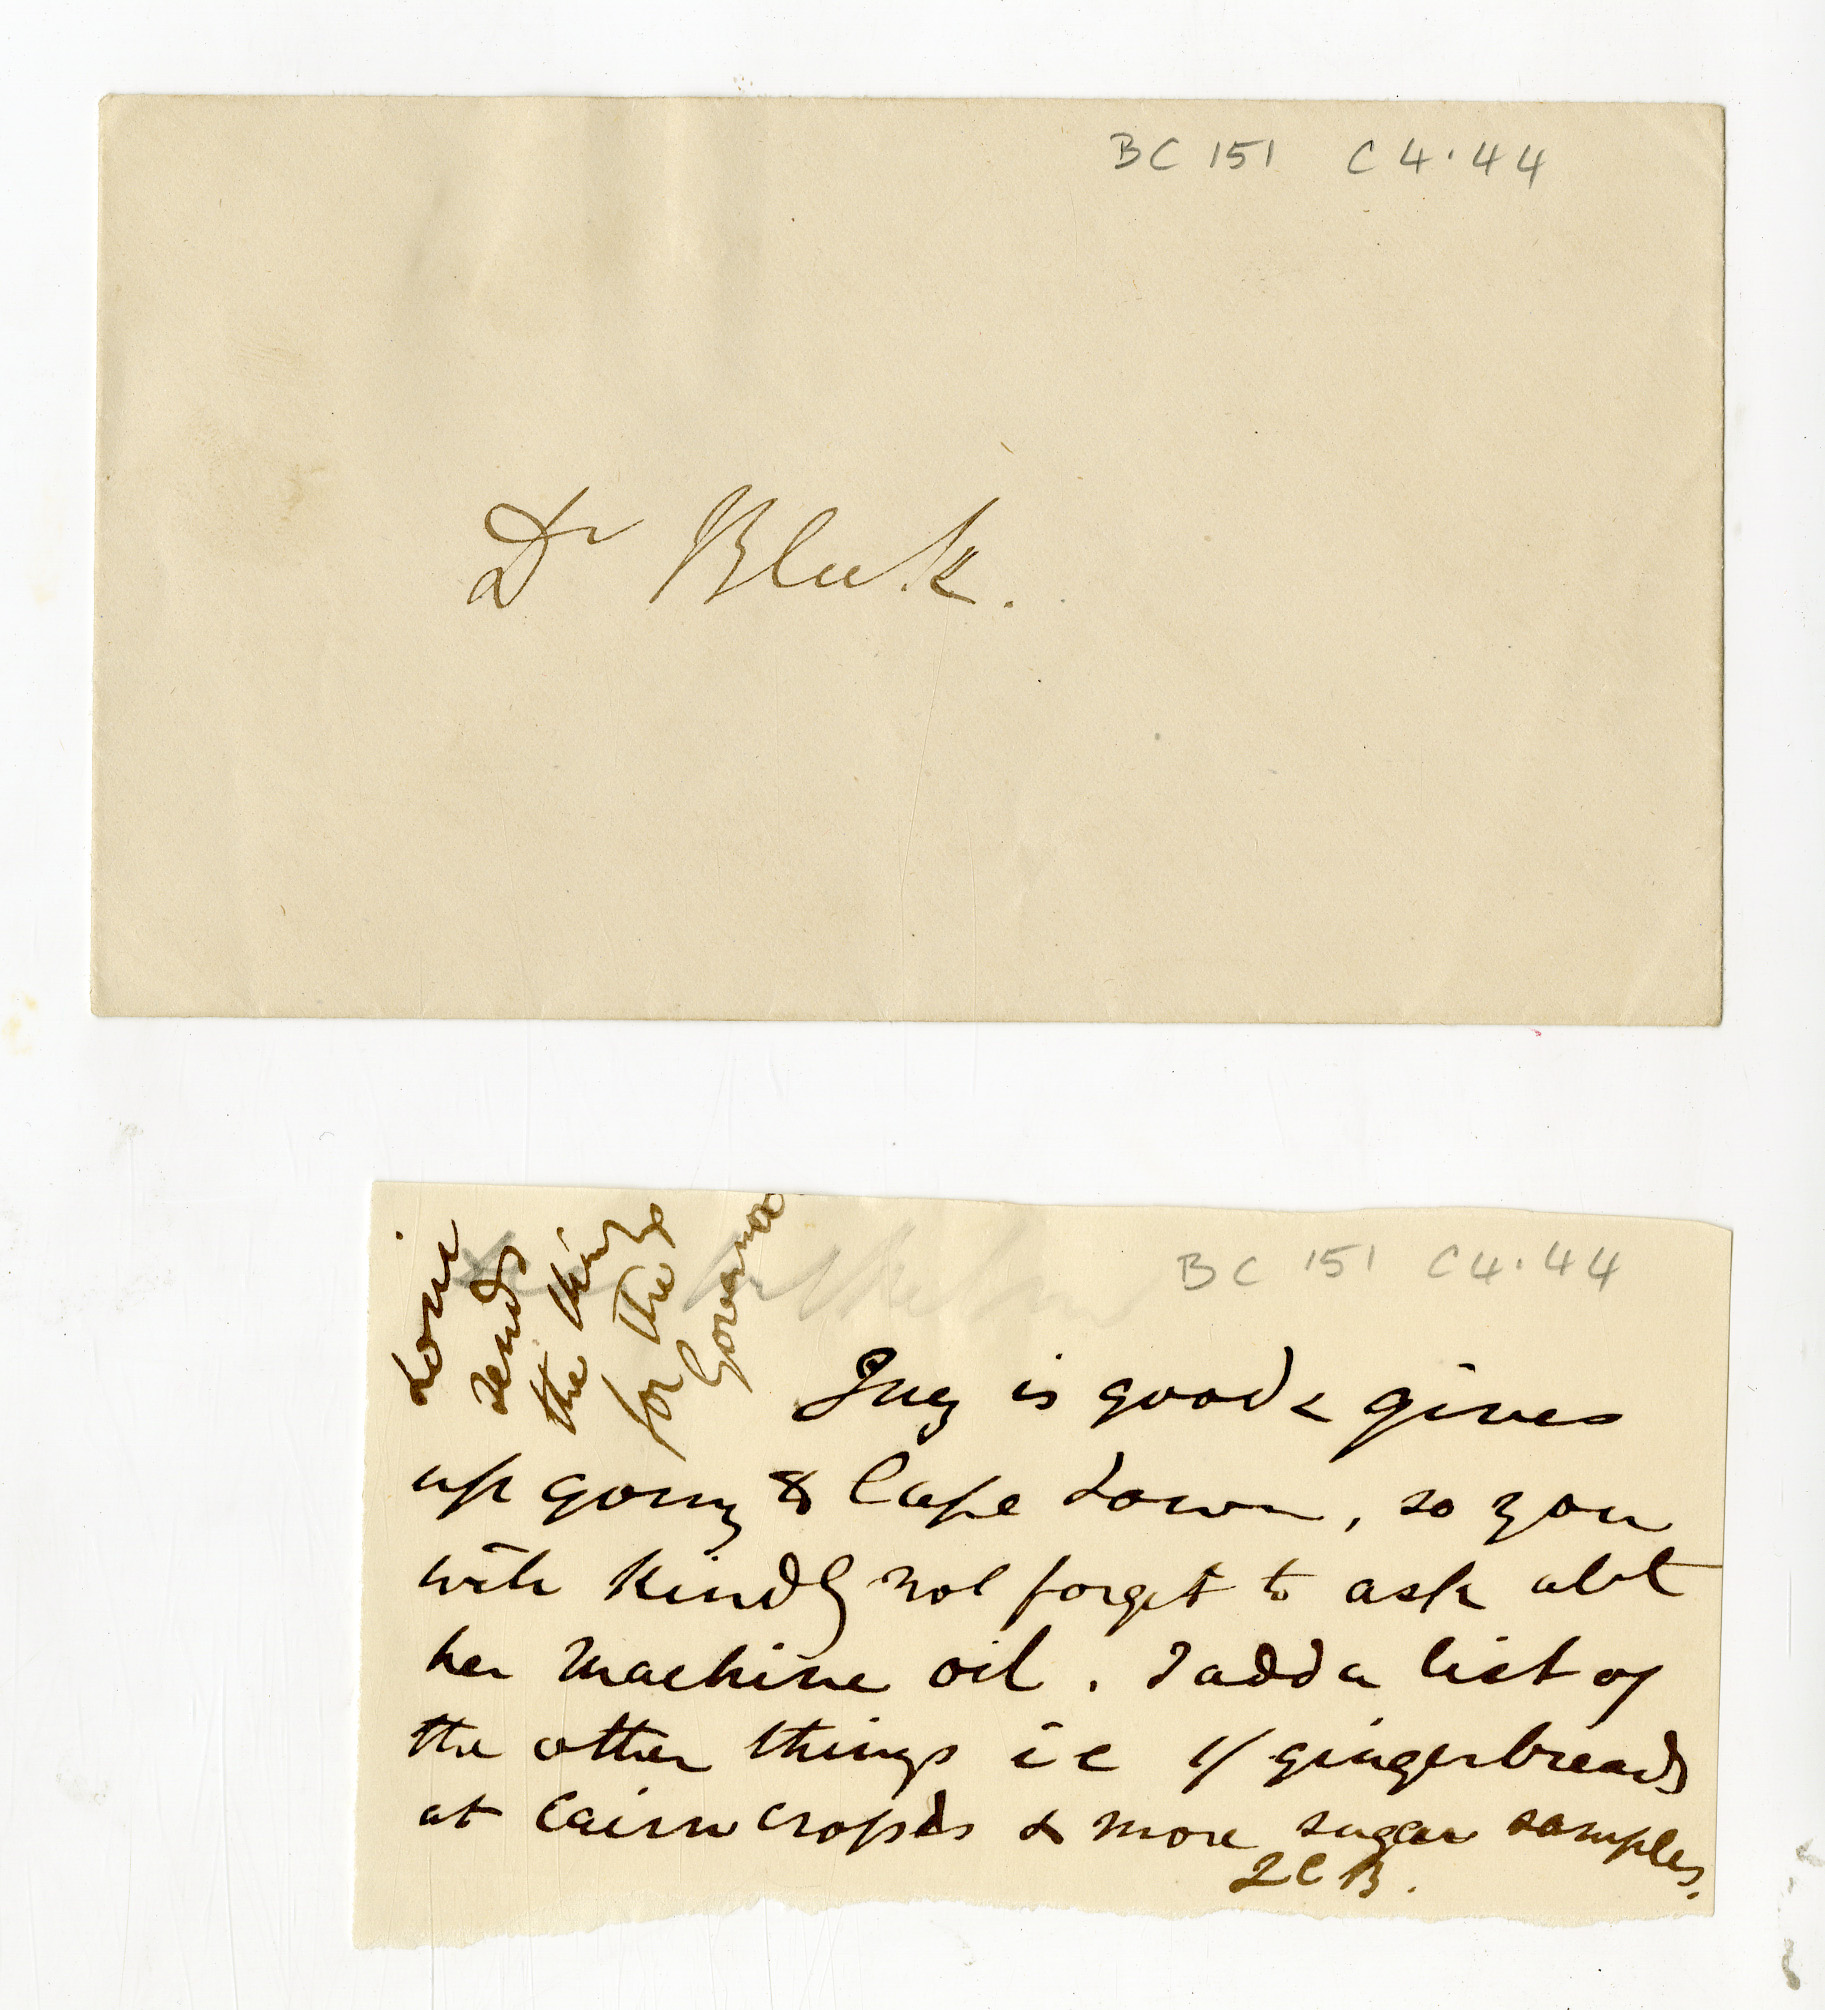 BC 151 C4.44
Dr Bleek.
BC 151 C4.44
Louis
sends
the things
for the
Governor
is good & gives
up going to Cape Town, so you
will kindly not forget to ask abt
her machine oil. I add a list of
the other things i e 1/ gingerbreads
at Cairncross's & more sugar samples.
LCB.